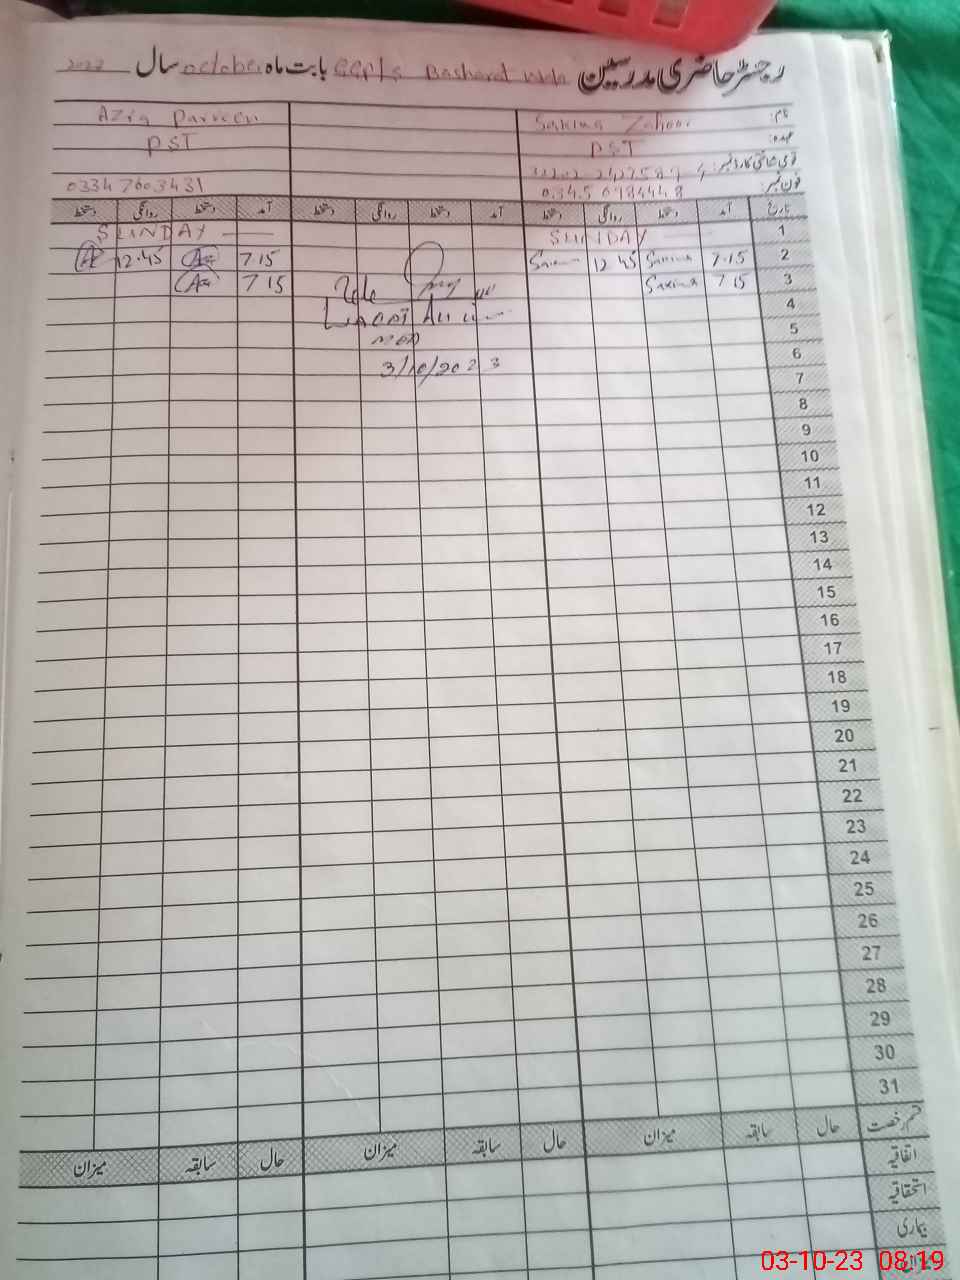 رجسٹر حاضری مدرسین GGPS Basharat بابت ماہ october سال
نام: Sakina Zahoor Azra Parveen
عہدہ: PST PST
قومی شناختی کارڈ نمبر:
فون نمبر: 0334 7603431
تاریخ آمد دستخط روانگی دستخط آمد دستخط روانگی دستخط آمد دستخط روانگی دستخط
1 SUNDAY SUNDAY
2 7.15 Sakina 12 45 7.15 12.45
3 7 15 Sakina 7 15
4
5
6 3/10/2023
7
8
9
10
11
12
13
14
15
16
17
18
19
20
21
22
23
24
25
26
27
28
29
30
31
قسم رخصت حال سابقہ میزان حال سابقہ میزان حال سابقہ میزان
اتفاقیہ
استحقاقیہ
بیماری
میزان
03-10-23 08:19